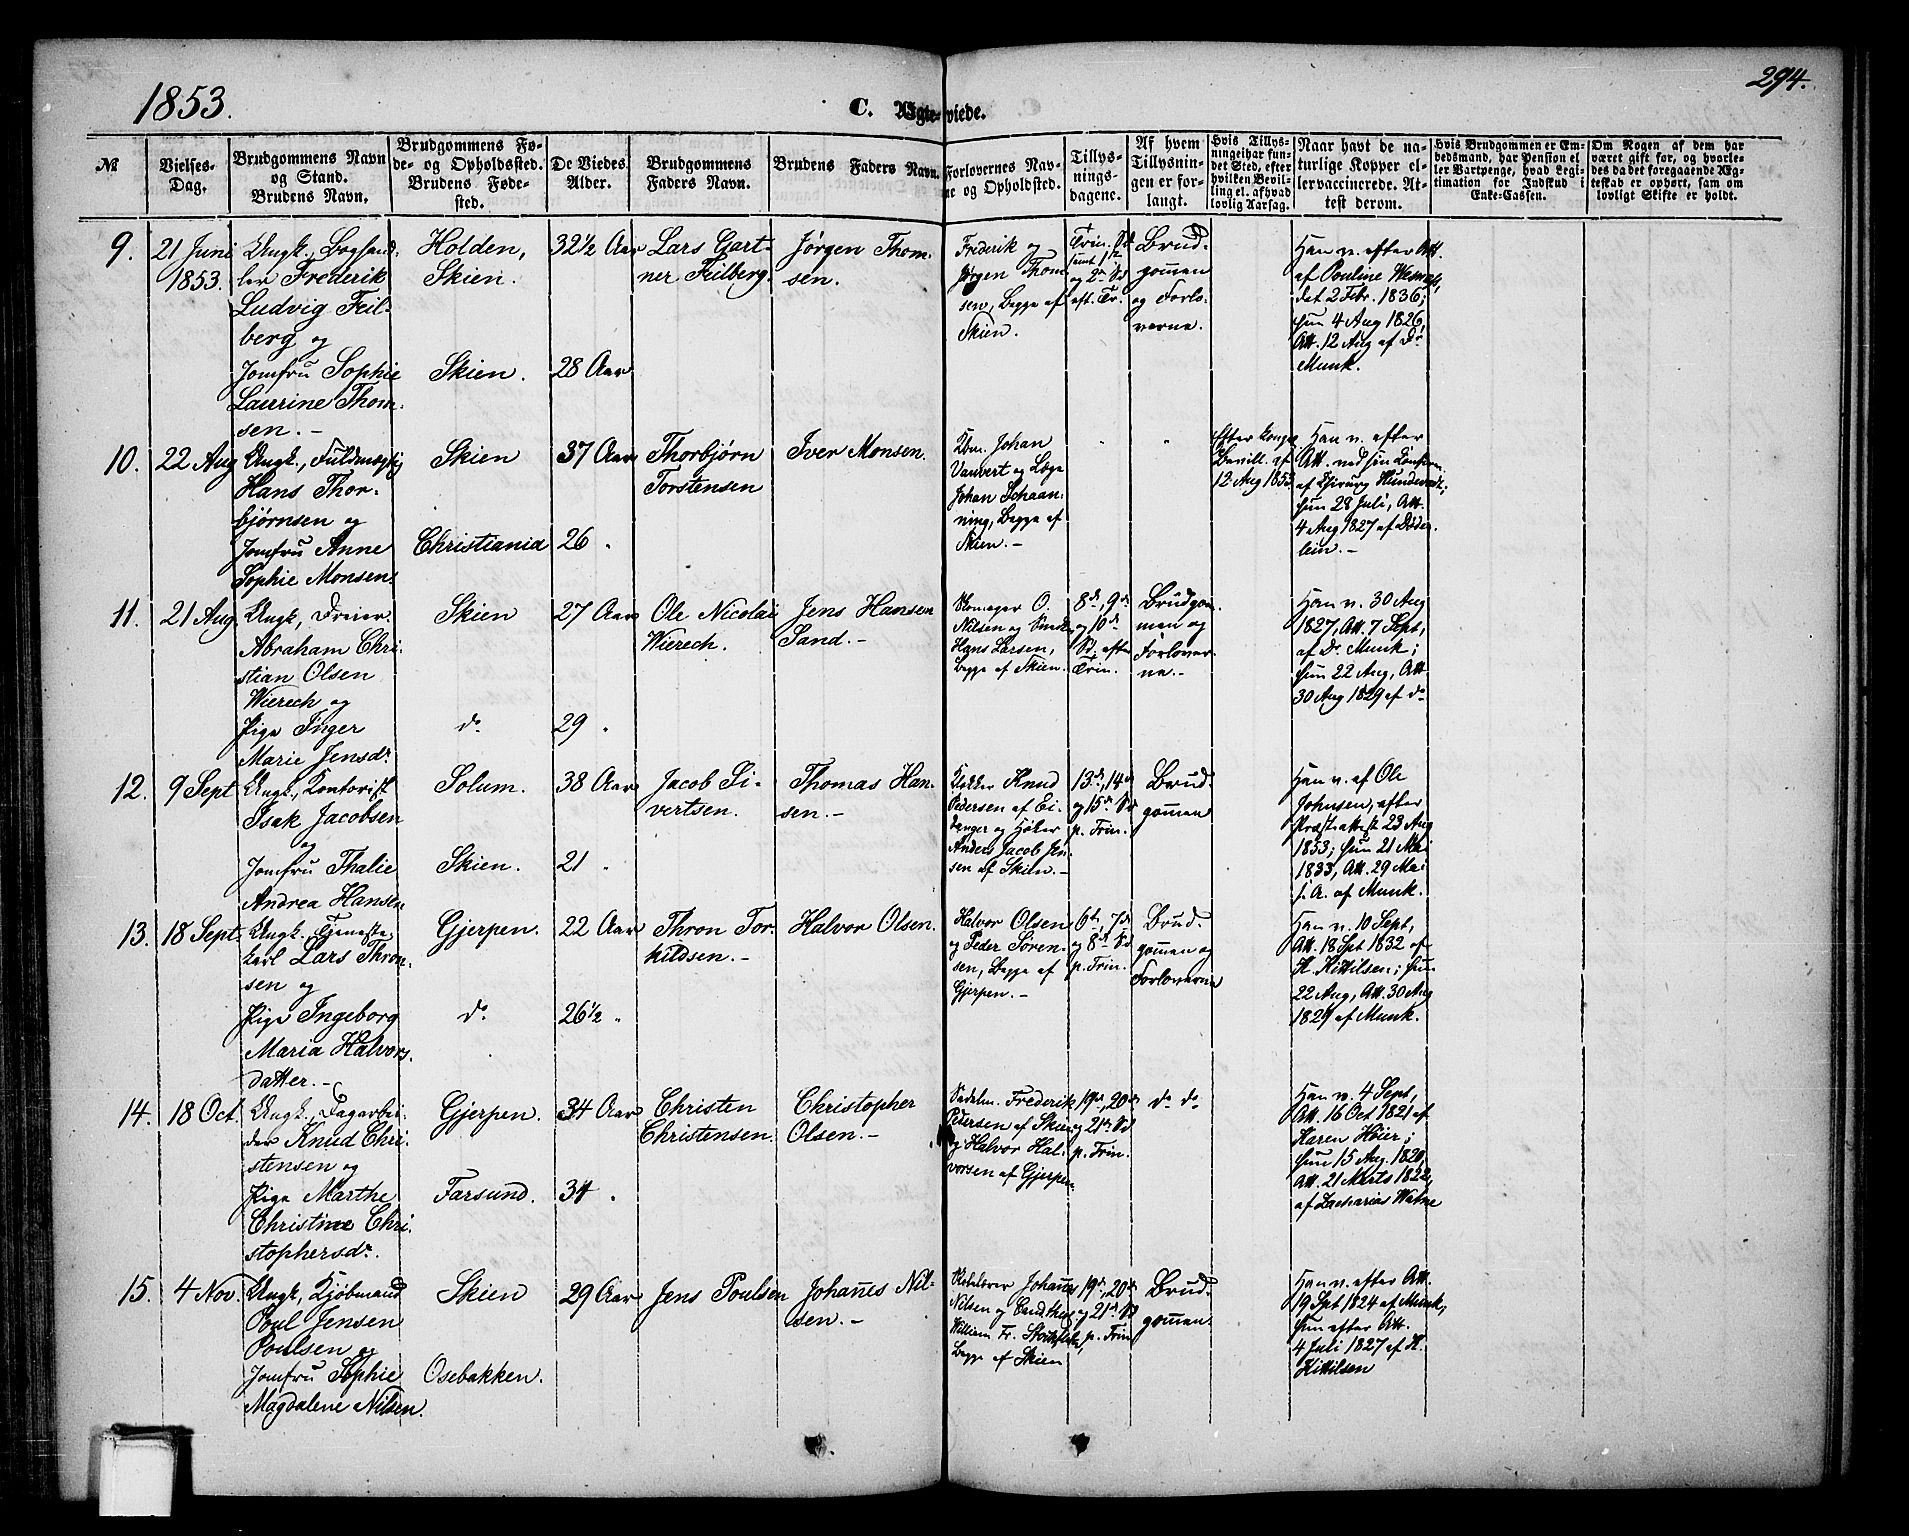 1853.
C. Ægteviede.
294.
№
Vielses-
Dag.
Brudgommens Navn
og Stand.
Brudens Navn.
Brudgommens Fø-
de- og Opholdssted.
Brudens Føde-
sted.
De Viedes
Alder.
Brudgommens
Faders Navn.
Brudens Faders Navn.
Forlovernes Nav-
ne og Opholdsted.
Tillys-
nings-
dagene.
Af hvem
Tillysnin-
gen er for-
langt.
Hvis Tillys-
ning ei har fun-
det Sted, efter
hvilken Bevil-
ling el. af hvad
lovlig Aarsag.
Naar havt de na-
turlige Kopper el-
ler vaccinerede. At-
test derom.
Hvis Brudgommen er Em-
bedsmand, har Pension el
ler Vartpenge, hvad Legi-
timation for Indskud i
Enke-Cassen.
Om Nogen af dem har
været gift før, og hvorle-
des da det foregaaende Æg-
teskab er ophørt, sam om
lovligt Skifte er holdt.
9.
21 Juni
1853.
Ungk., Boghand-
ler Frederik
Ludvig Feil-
berg og
Jomfru Sophie
Laurine Thom-
sen. -
Holden,
Skien.
Skien.
32½ Aar
28 Aar
Lars Gart-
ner Feilberg.
Jørgen Thom-
sen.
Frederik og
Jørgen Thom-
sen, Begge af
Skien.
Trin. Sd
samt 1ste
og 2n Sd
eft. Tr.
Brud-
gomen
og Forlo-
verne.
Han v. efter Att.
af Pouline
det 2 Febr. 1836;
hun 4 Aug 1826,
Att. 12 Aug af Dr
Munk.
10.
22 Aug
Ungk., Fuldmægtig
Hans Thor-
bjørnsen og
Jomfru Anne
Sophie Monsen.
Skien
Christiania
37 Aar
26 "
Thorbjørn
Torstensen
Iver Monsen.
Kbm. Johan
Vauvert og Læge
Johan Schaan-
ning, Begge af
Skien. -
"
"
Efter kongel
Bevill. af
12 Aug 1853
Han v. efter
Att. ved sin Konfirm.
af Chirurg
hun 28 Juli, Att.
4 Aug 1827 af Døder-
lein. -
11.
21 Aug
Ungk., Dreier
Abraham Chri-
stian Olsen
Wierech og
Pige Inger
Marie Jensdr.
Skien
do
27 Aar
29 "
Ole Nicolai
Wierech.
Jens Hansen
Sand. -
Skomager O.
Nilsen og Smed
Hans Larsen,
Begge af Skien.
8de, 9de
og 10de
Sd. efter
Trin.
Brudgo-
men og
Forlover-
ne. -
Han v. 30 Aug
1827, Att. 7 Sept,
af Dr. Munk;
hun 22 Aug, Att
30 Aug 1829 af do
12.
9 Sept
Ungk., Kontorist
Isak Jacobsen
og
Jomfru Thalie
Andrea Hansen
Solum.
Skien.
38 Aar
21 "
Jacob Si-
vertsen.
Thomas Han-
sen. -
Klokker Knud
Pedersen af Ei-
danger og Høker
Anders Jacob Jen-
sen af Skien. -
13de, 14de
og 15de Sd
p. Trin.
Brud-
gomen
Han v. af Ole
Johnsen, efter
Præsteattest 23 Aug
1853; hun 21 Mai
1833, Att. 29 Mai
s. A. af Munk.
13.
18 Sept.
Ungk. Tjeneste-
karl Lars Thron-
sen og
Pige Ingeborg
Maria Halvors-
datter. -
Gjerpen.
do
22 Aar
26½ "
Thron Tor-
kildsen. -
Halvor Olsen.
Halvor Olsen
og Peder Sören-
sen, Begge af
Gjerpen. -
6te, 7de
og 8de Sd
p. Trin.
Brud-
gomen og
Forloverne
Han v. 10 Sept,
Att. 18 Spt 1832 af
H. Kittilsen; hun
22 Aug, Att. 30 Aug
1829 af Munk.
14.
18 Oct.
Ungk., Dagarbei-
der Knud Chri-
stensen og
Pige Marthe
Christine Chri-
stophersdr.
Gjerpen.
Farsund.
34 Aar
34 "
Christen
Christensen.
Christopher
Olsen. -
Sadelm. Frederik
Pedersen af Skien
og Halvor Hal-
vorsen af Gjerpen
19de, 20de
og 21de Sd
p. Trin.
do do
Han v. 4 Sept,
Att. 16 Oct 1821 af
Karen Høier;
hun 15 Aug. 1820,
Att. 21 Marts 1822,
af Zacharias Watne
15.
4 Nov.
Ungk., Kjöbmand
Poul Jensen
Poulsen og
Jomfru Sophie
Magdalene Nilsen.
Skien
Osebakken.
29 Aar
Jens Poulsen
Johanes Nil-
sen. -
Johanes
Nilsen og
William Fr. Stockfleth,
Begge af Skien
19de, 20de
og 21de Sd
p. Trin
Brud-
gomen.
Han v. efter Att.
19 Spt 1824 af Munk,
hun efter Att.
4 Juli 1827 af H.
Kittilsen